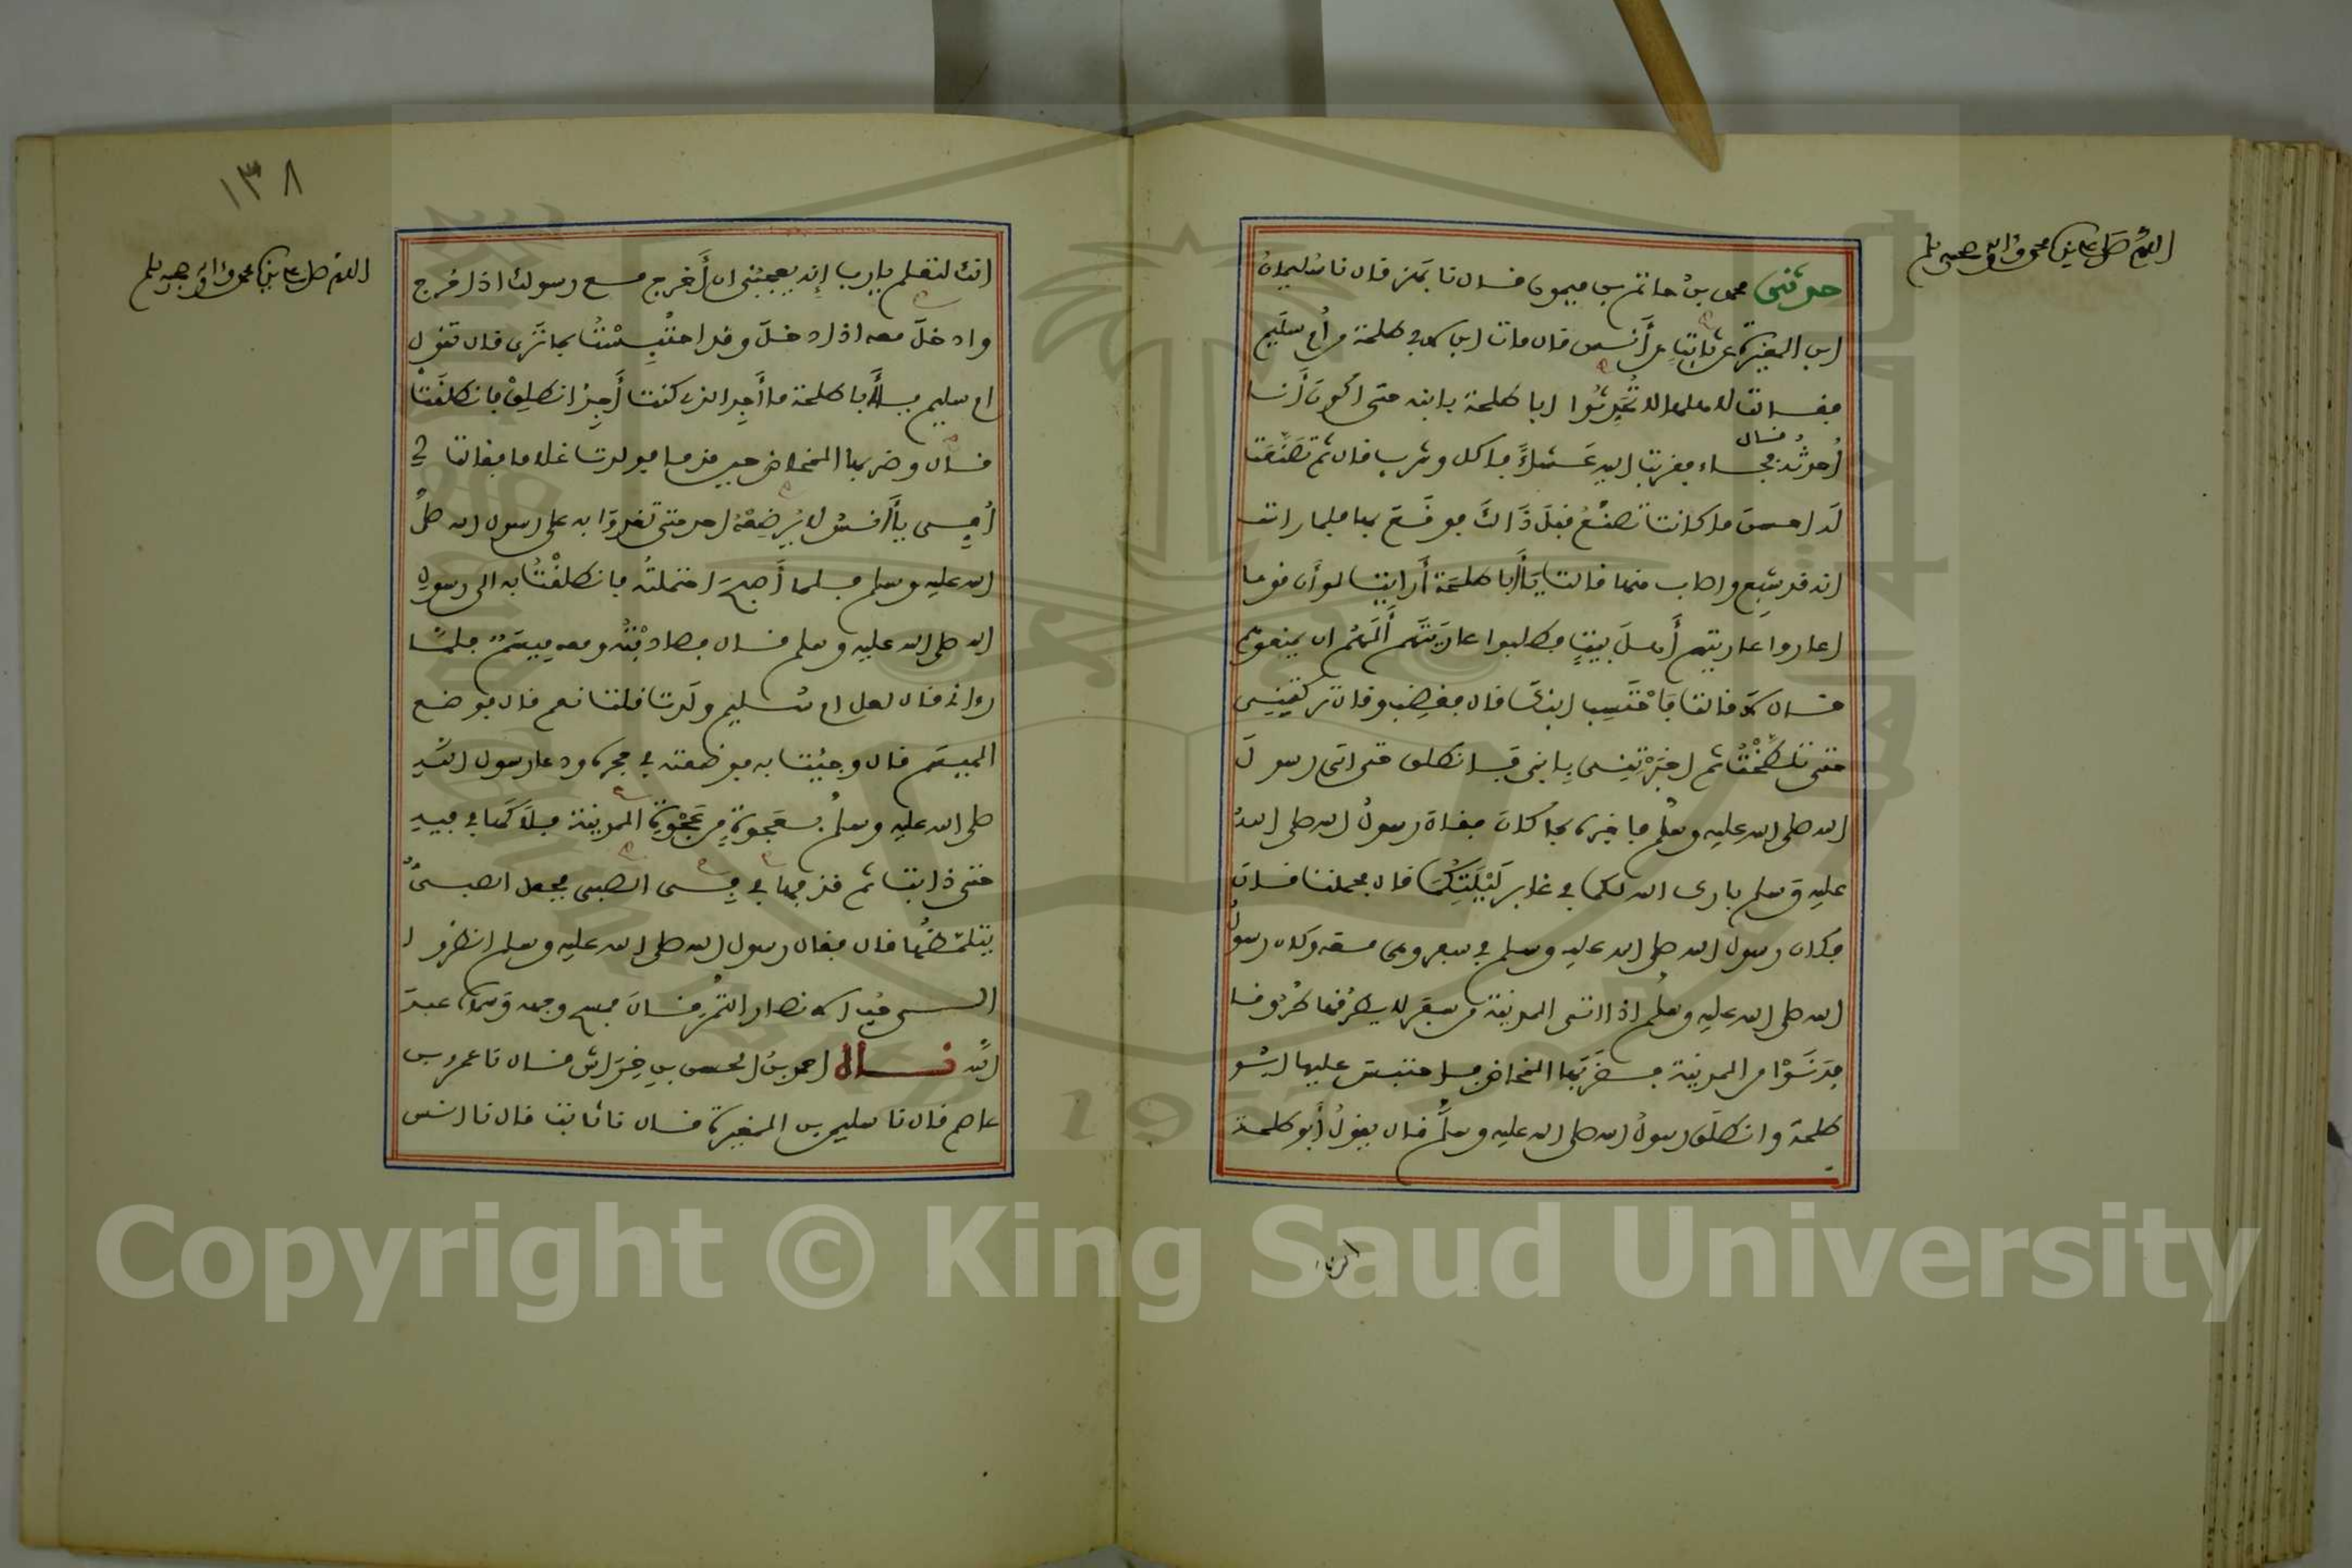 اللهم صل على نبينا محمد وآله وصحبه وسلم
حدثني محمد بن حاتم بن ميمون قال نا بهز قال نا سليمان
ابن المغيرة عن ثابت عن أنس قال مات ابن لابي طلحة من أم سليم
فقالت لاهلها لا تُحَدِّثُوا ابا طلحة بابنه حتى اكون أنا
أحدثه قال فجاء فقربت اليه عَشاءً فاكل وشرب قال ثم تَصَنَّعَت
له احسن ما كانت تَصَنَّعُ قبل ذَالك فوقع بها فلما رات
انه قد شبع واصاب منها قالت يا أبا طلحة أرايت لو أن قوما
اعاروا عاريتهم أهل بيتٍ فطلبوا عاريتهم ألهم ان يمنعوهم
قال لا قالت فاحْتَسِب ابنك قال فغضب وقال تركتِنِي
حتى تلطَّخْتُ ثم اخبرْتِنِي بابني فانطلق حتى اتى رسول
الله صلى الله عليه وسلم فاخبره بما كان فقال رسول الله صلى الله
عليه وسلم بارك الله لكما في غابر لَيْلَتِكُمَا قال فحملت قال
فكان رسول الله صلى الله عليه وسلم في سفر وهي معه وكان رسول
الله صلى الله عليه وسلم اذا اتى المدينة من سفر لا يطرُقها طُروقا
فدَنَوْا من المدينة فضربَها المخاض فاحتبس عليها ابو
طلحة وانطلَق رسول الله صلى الله عليه وسلم قال يقولُ أبو طلحة
انك
١٣٨
اللهم صل على نبينا محمد وآله وصحبه وسلم
انك لتعلم يا رب إنه يعجبُني ان أَخرج مع رسولك اذا خرج
وادخلَ معه اذا دخل وقد احتُبِسْتُ بما ترى قال تقول
ام سليم يا أبا طلحة ما أجد الذي كنت أَجِدُ انطلِقْ فانطلقْنا
قال وضربها المخاض حين قدما فولدت غلاما فقالت لي
أُمي يا أنسُ لا يُرضِعْهُ احد حتى تغدوَ به على رسول الله صلى
الله عليه وسلم فلما أَصبح احتملتُه فانطلقْتُ به الى رسول
الله صلى الله عليه وسلم قال فصادفْتُه ومعه مِيسَمٌ فلمّا
رواني قال لعل ام سُليم ولَدَت قلت نعم قال فوضع
الميسَم قال وجئت به فوضعته في حجره ودعا رسول الله
صلى الله عليه وسلم بعجوةٍ من عَجْوةِ المدينة فلاكَها في فيه
حتى ذابت ثم قذفها في فِي الصبي فجعل الصبيُّ
يتلمَّظُها قال فقال رسول الله صلى الله عليه وسلم انظروا
الى حُب الانصار التمرَ قال فمسح وجهه وسماه عبدَ
الله قال احمد بنُ الحسن بنِ خِرَاش قال نا عمرو بن
عاصم قال نا سليمن بن المغيرة قال نا ثابت قال نا انس